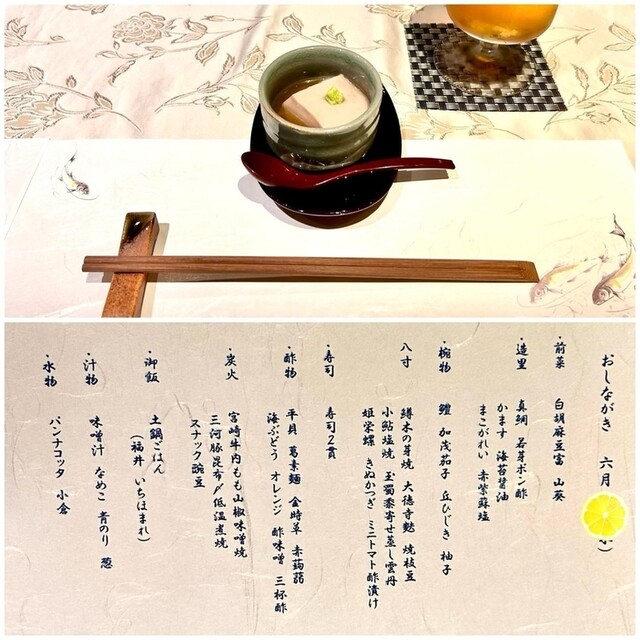 おしながき 六月
・前菜 白胡麻豆富 山葵
・造里 真鯛 若芽ポン酢
かます 海苔醤油
まこがれい 赤紫蘇塩
・椀物 鱧 加茂茄子 丘ひじき 柚子
・八寸 鱒木の芽焼 大徳寺麩 焼枝豆
小鮎塩焼 玉蜀黍寄せ蒸し雲丹
姫栄螺 きぬかつぎ ミニトマト酢漬け
・寿司 寿司2貫
・酢物 平貝 葛素麺 金時草 赤蒟蒻
海ぶどう オレンジ 酢味噌 三杯酢
・炭火 宮崎牛内もも山椒味噌焼
三河豚昆布〆低温煮焼
スナック豌豆
・御飯 土鍋ごはん
(福井 いちほまれ)
・汁物 味噌汁 なめこ 青のり 葱
・水物 パンナコッタ 小倉